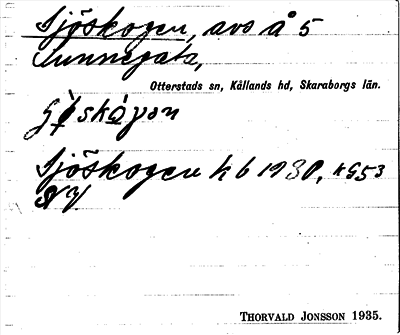 Sjöskogen, avs å 5
Sunnegata,
Otterstads sn, Kållands hd, Skaraborgs län.
Sjöskogen kb 1930, k G53
THORVALD JONSSON 1935.